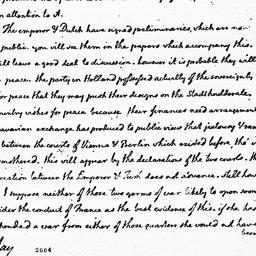 an attention to it.
The emperor & Dutch have signed preliminaries, which are now
public. you will see them in the papers which accompany this.
ill leave a good deal to discussion. however it is probable they will
peace. the party in Holland possessed actually of the sovereignty
for peace that they may push their designs on the Stadtholderate.
country wishes for peace because their finances need arrangement
avarian exchange has produced to public view that jealousy & ran
between the courts of Vienna & Berlin which existed before, tho' i
mothered. this will appear by the declarations of the two courts. th
cation between the Emperor & Turk does not advance. still how
I suppose neither of those two germs of war likely to open soon
sider the conduct of France as the best evidence of this. if she had
hended a war from either of those quarters she would not have
Jay
2604